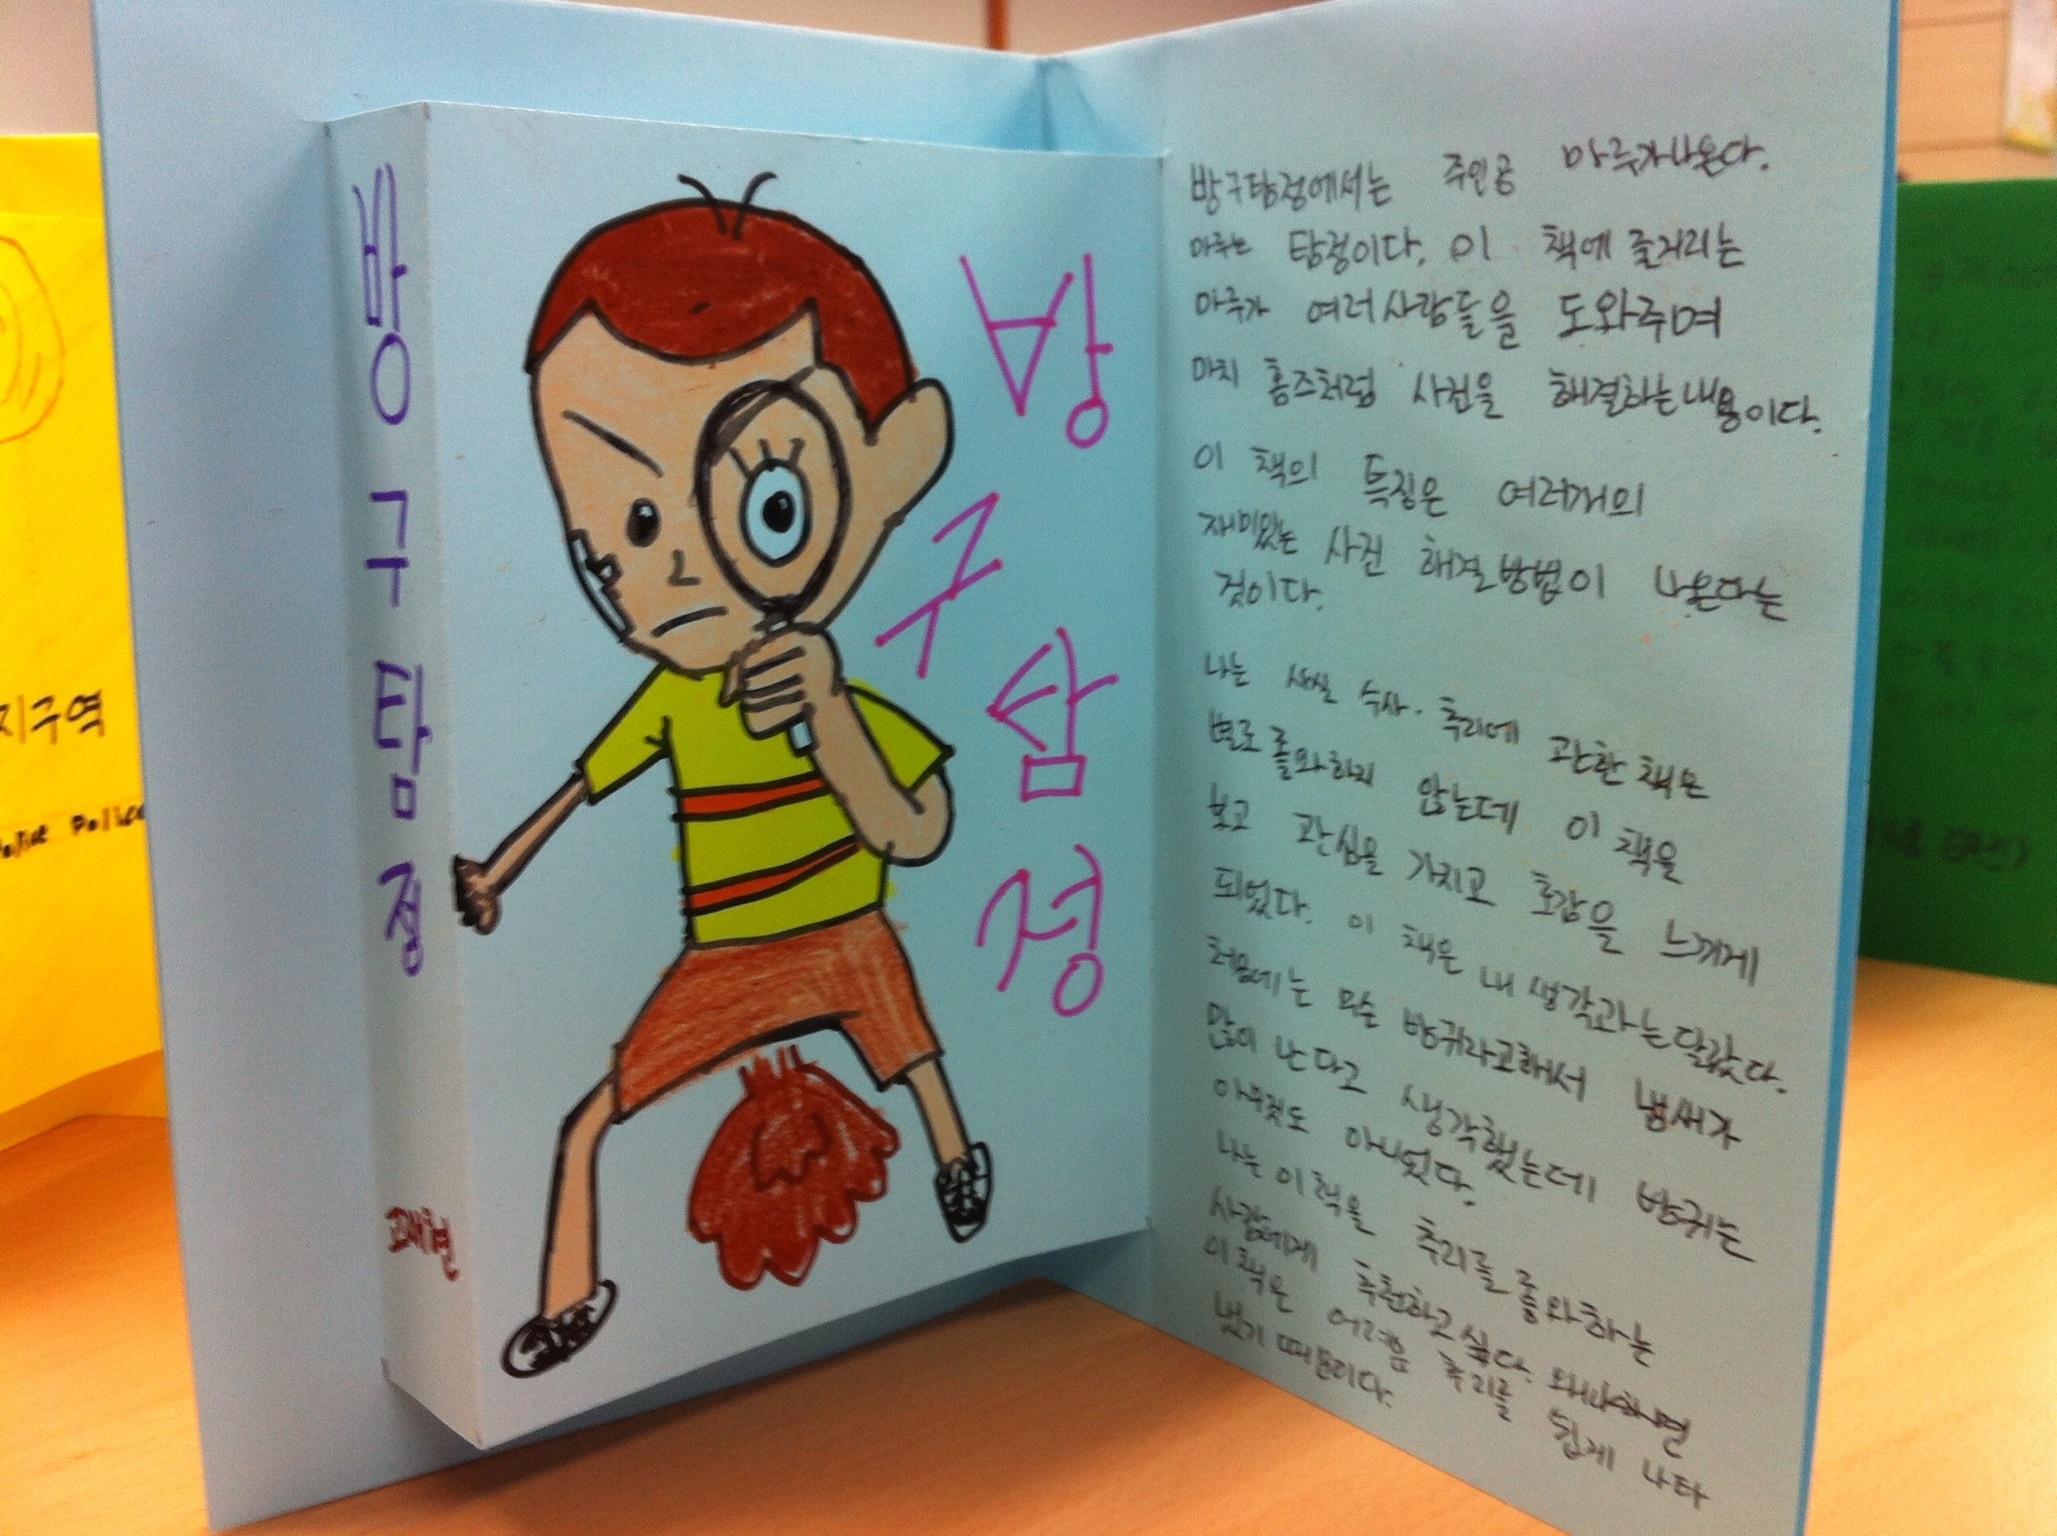 방구탐정
고재현
방구탐정
방구탐정에서는 주인공 마루가나온다.
마루는 탐정이다. 이 책에 줄거리는
마루가 여러사람들을 도와주며
마치 홈즈처럼 사건을 해결하는내용이다.
이 책의 특징은 여러개의
재미있는 사건 해결방법이 나온다는
것이다.
나는 사실 수사·추리에 관한 책은
별로 좋와하지 않는데 이 책을
보고 관심을 가지고 호감을 느끼게
되었다. 이 책은 내 생각과는달랐다.
처음에는 무슨 방귀라고해서 냄새가
많이 난다고 생각했는데 방귀는
아무것도 아니였다.
나는 이책을 추리를 좋와하는
사람에게 추천하고싶다. 왜냐하면
이책은 어려운 추리를 쉽게 나타
냈기 때문이다.
지구역
Police Police